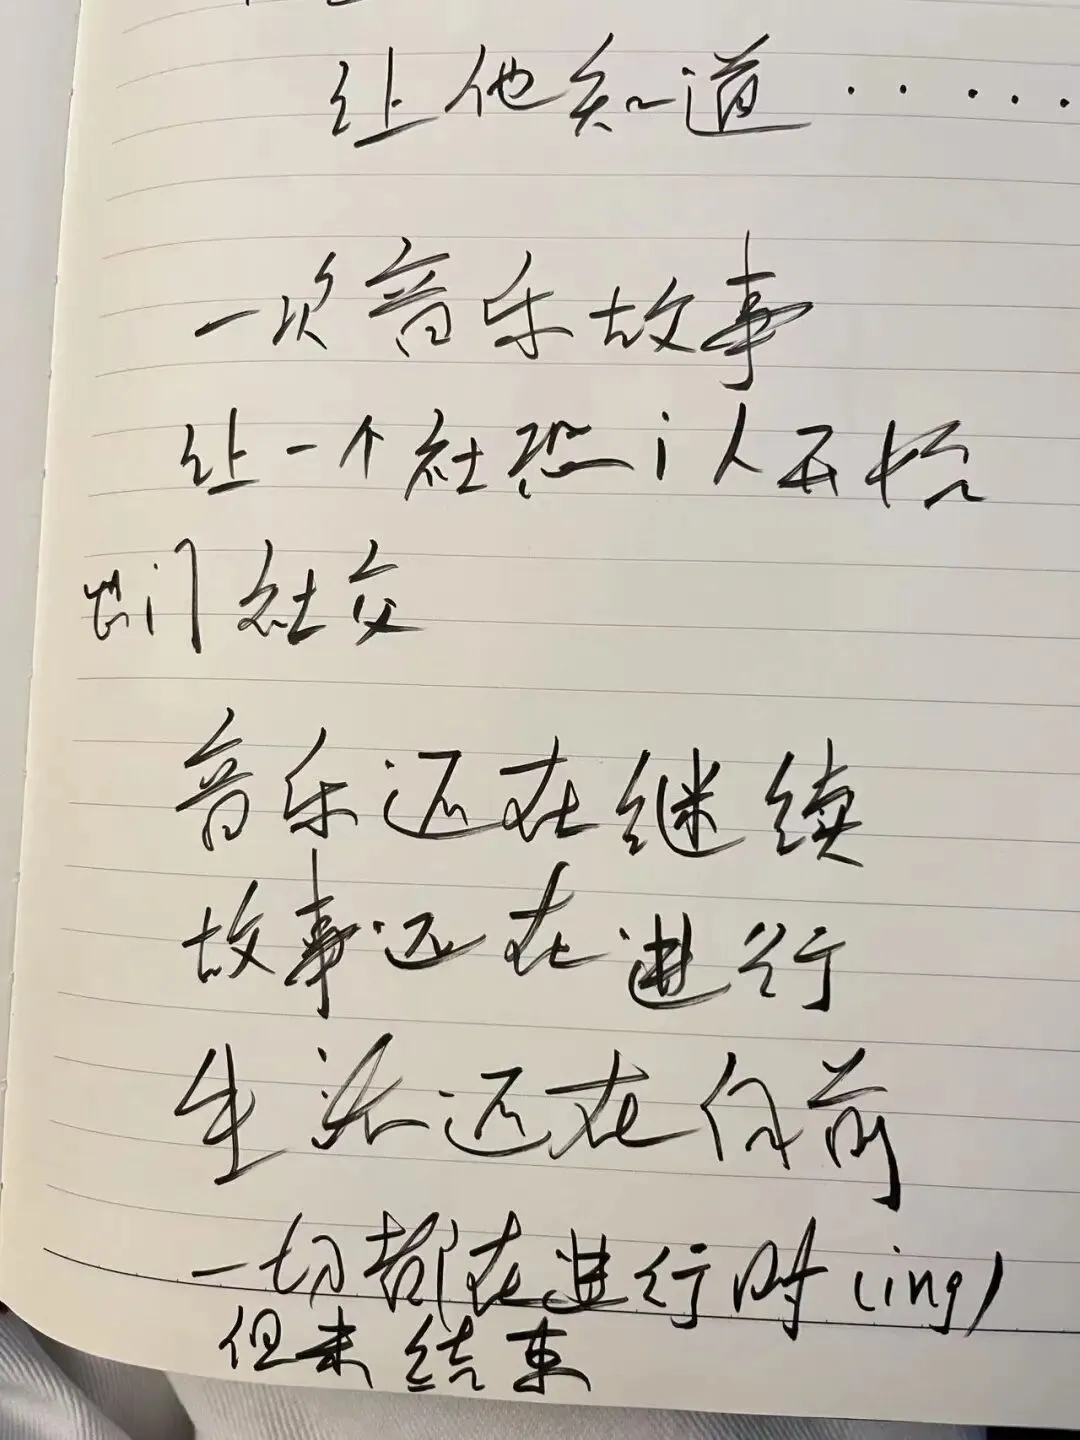 让他知道······
一次音乐故事
让一个社恐i人开始
出门社交
音乐还在继续
故事还在进行
生活还在向前
一切都在进行时(ing)
但未结束